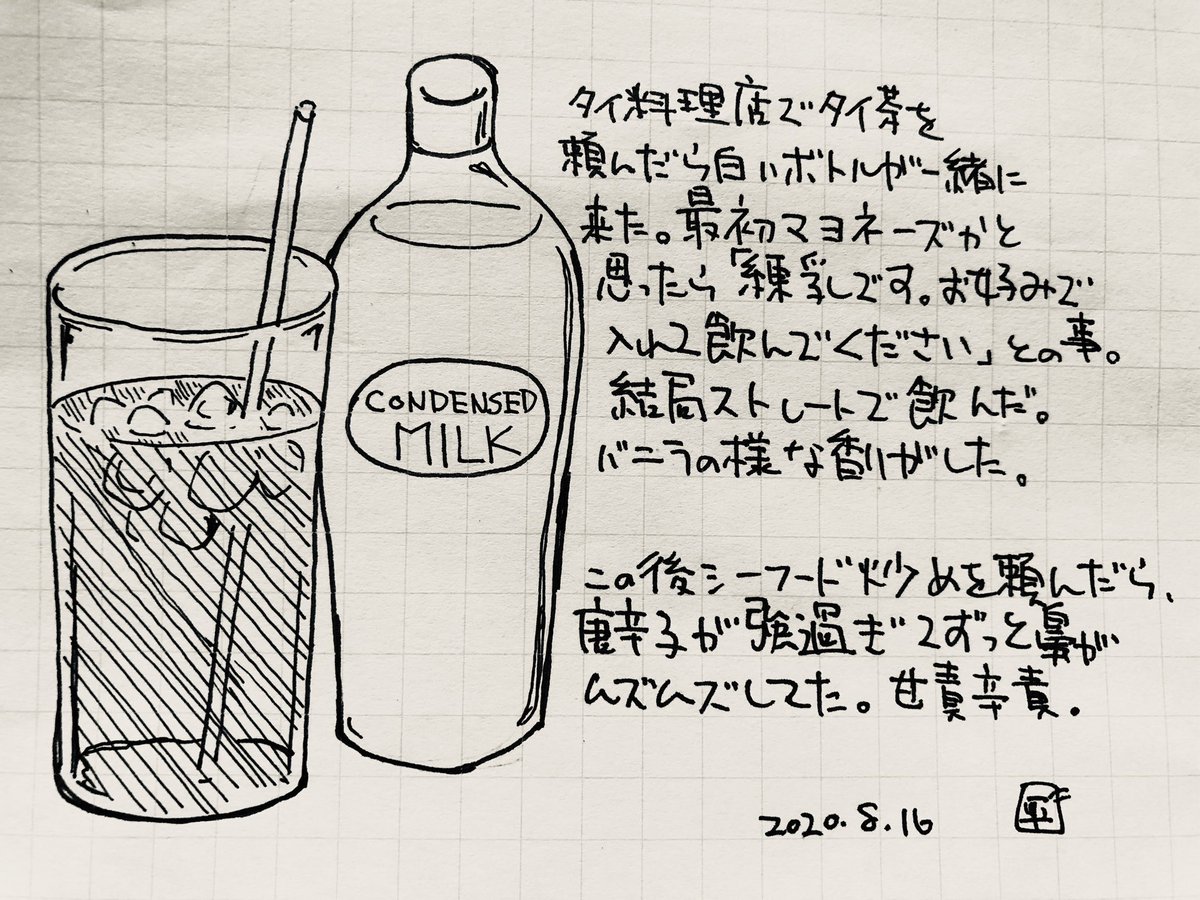 CONDENSED
MILK
タイ料理店でタイ茶を
頼んだら白いボトルが一緒に
来た。最初マヨネーズかと
思ったら「練乳です。お好みで
入れて飲んでください」との事。
結局ストレートで飲んだ。
バニラの様な香りがした。
この後シーフード炒めを頼んだら、
唐辛子が強過ぎてずっと鼻が
ムズムズしてた。甘責辛責。
2020.8.16